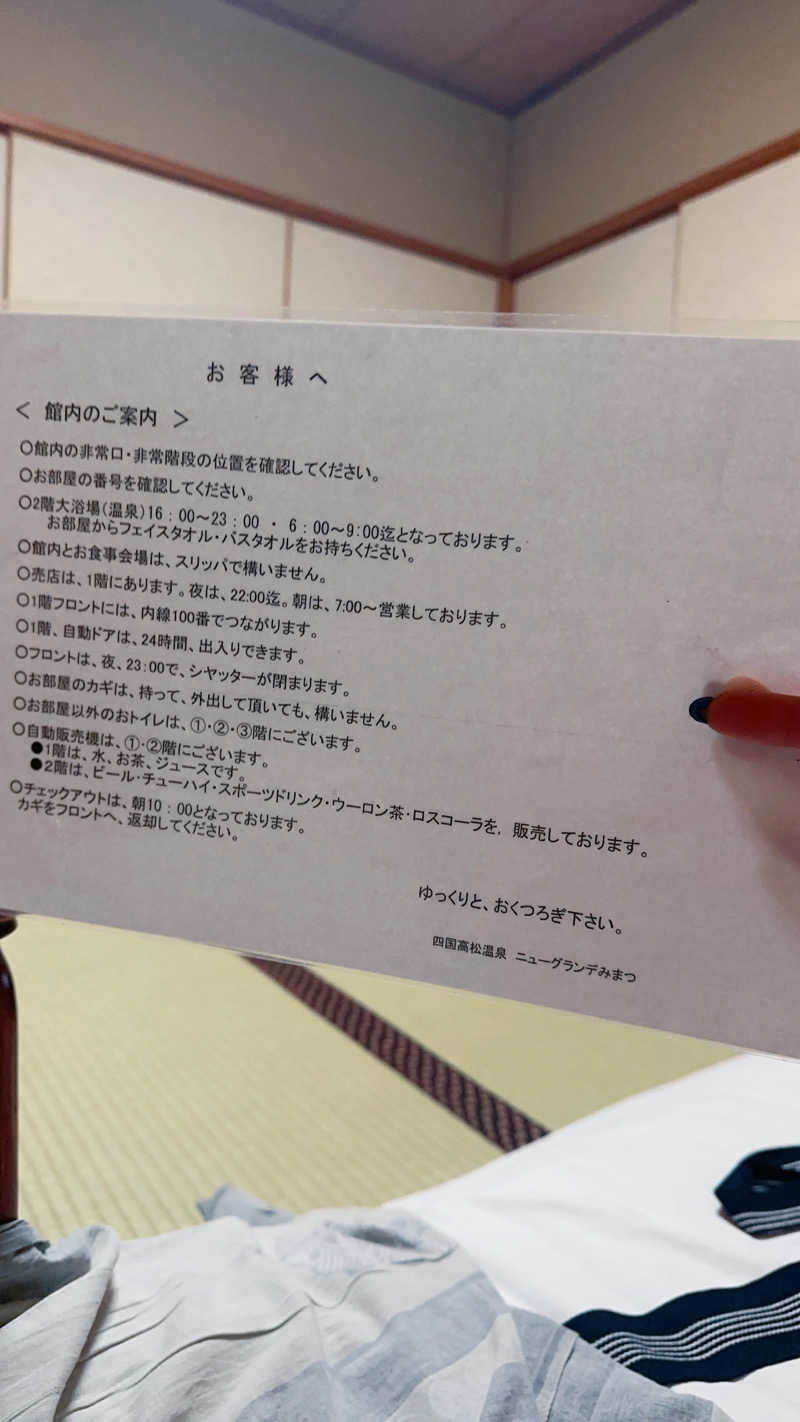 お客様へ
＜ 館内のご案内 ＞
○館内の非常口・非常階段の位置を確認してください。
○お部屋の番号を確認してください。
○2階大浴場（温泉）16：00～23：00 ・ 6：00～9:00迄となっております。
お部屋からフェイスタオル・バスタオルをお持ちください。
○館内とお食事会場は、スリッパで構いません。
○売店は、1階にあります。夜は、22:00迄。朝は、7:00～営業しております。
○1階フロントには、内線100番でつながります。
○1階、自動ドアは、24時間、出入りできます。
○フロントは、夜、23:00で、シヤッターが閉まります。
○お部屋のカギは、持って、外出して頂いても、構いません。
○お部屋以外のおトイレは、①・②・③階にございます。
○自動販売機は、①・②階にございます。
●1階は、水、お茶、ジュースです。
●2階は、ビール・チューハイ・スポーツドリンク・ウーロン茶・ロスコーラを，販売しております。
○チェックアウトは、朝10：00となっております。
カギをフロントへ、返却してください。
ゆっくりと、おくつろぎ下さい。
四国高松温泉 ニューグランデみまつ